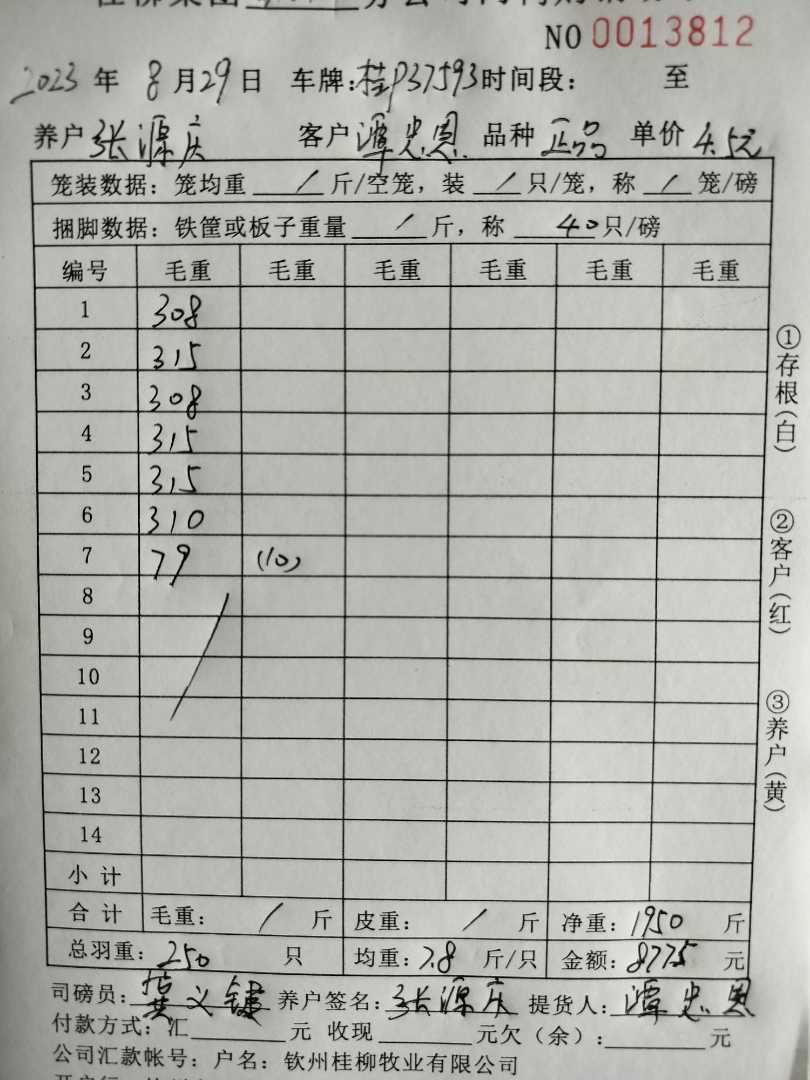 NO 0013812
2023 年 8 月 29 日 车牌:桂P37593 时间段: 至
养户 张源庆 客户 潭忠恩 品种 正品 单价 4.5元
笼装数据: 笼均重 / 斤/空笼, 装 / 只/笼, 称 / 笼/磅
捆脚数据: 铁筐或板子重量 / 斤, 称 40 只/磅
编号 毛重 毛重 毛重 毛重 毛重 毛重
1 308
2 315
3 308
4 315
5 315
6 310
7 79 (10)
8
9
10
11
12
13
14
小 计
合 计 毛重: / 斤 皮重: / 斤 净重: 1950 斤
总羽重: 250 只 均重: 7.8 斤/只 金额: 8775 元
司磅员: 义键 养户签名: 张源庆 提货人: 潭忠恩
付款方式: 汇 元 收现 元欠(余): 元
公司汇款帐号: 户名: 钦州桂柳牧业有限公司
①存根(白)
②客户(红)
③养户(黄)